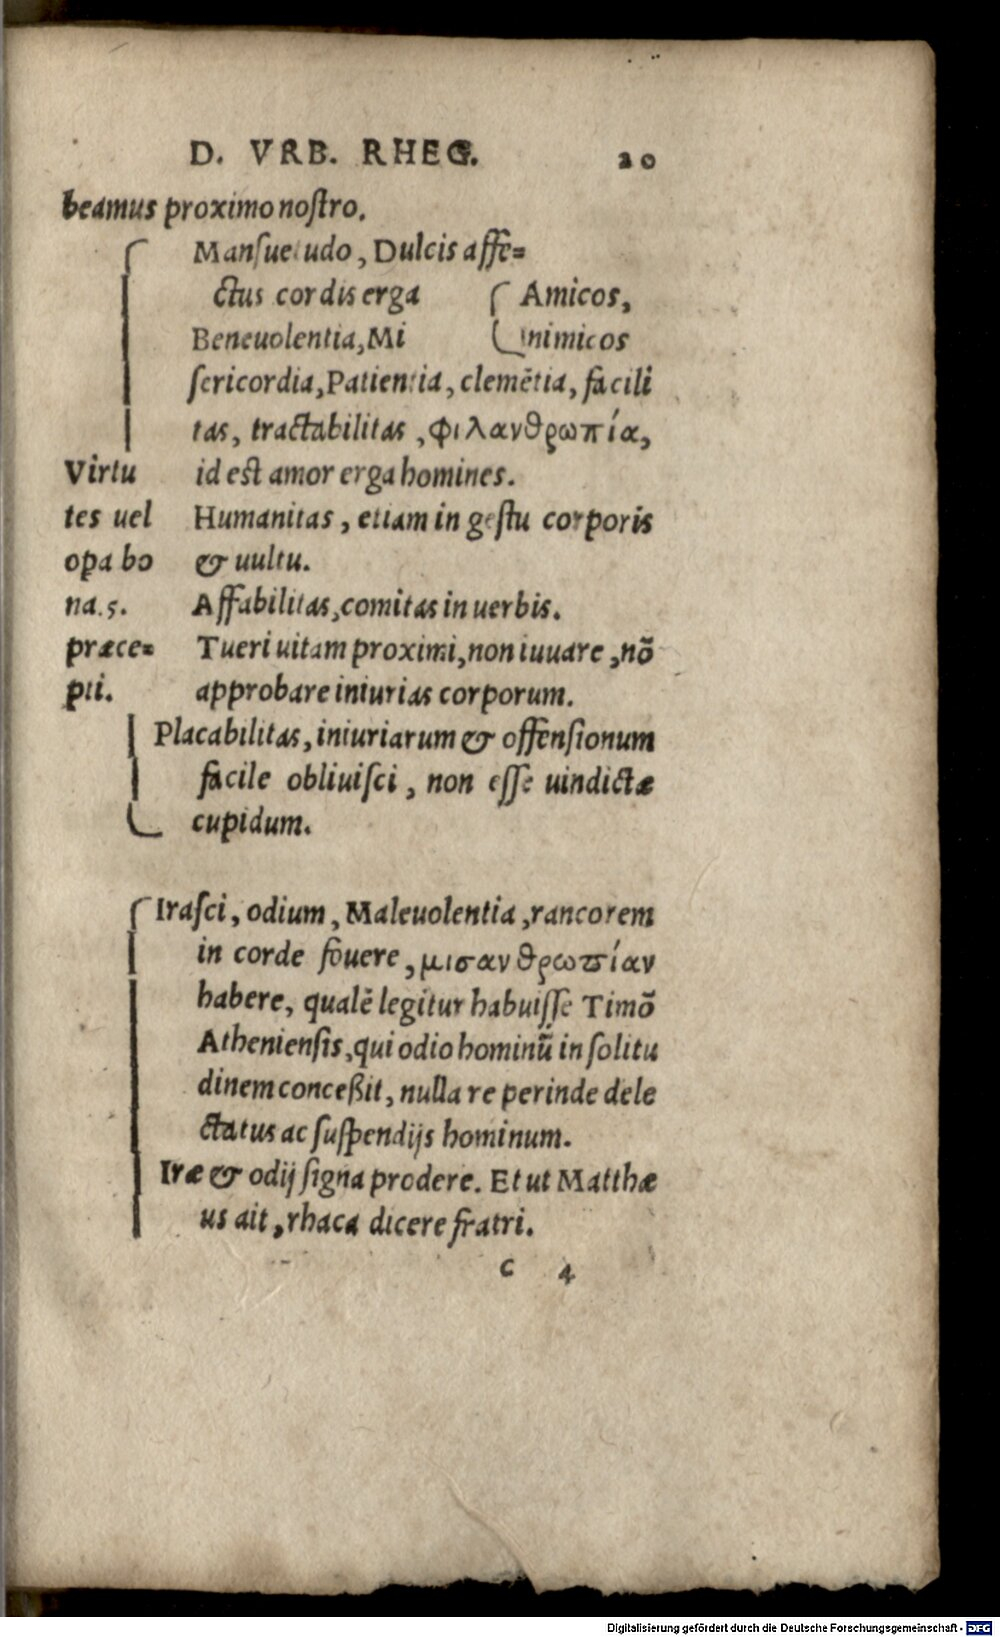 D. VRB. RHEG. 20
beamus proximo nostro.
Mansuetudo, Dulcis affe=
ctus cordis erga Amicos,
Beneuolentia, Mi Inimicos
sericordia, Patientia, clemẽtia, facili
tas, tractabilitas, φιλανθρωπία,
Virtu id est amor erga homines.
tes uel Humanitas, etiam in gestu corporis
opa bo & uultu.
na. 5. Affabilitas, comitas in uerbis.
præce= Tueri uitam proximi, non iuuare, nõ
pti. approbare iniurias corporum.
Placabilitas, iniuriarum & offensionum
facile obliuisci, non esse uindictæ
cupidum.
Irasci, odium, Maleuolentia, rancorem
in corde fouere, μισανθρωπίαν
habere, qualẽ legitur habuisse Timõ
Atheniensis, qui odio hominũ in solitu
dinem conceßit, nulla re perinde dele
ctatus ac suspendijs hominum.
Iræ & odij signa prodere. Et ut Matthæ
us ait, rhaca dicere fratri.
c 4
Digitalisierung gefördert durch die Deutsche Forschungsgemeinschaft - DFG